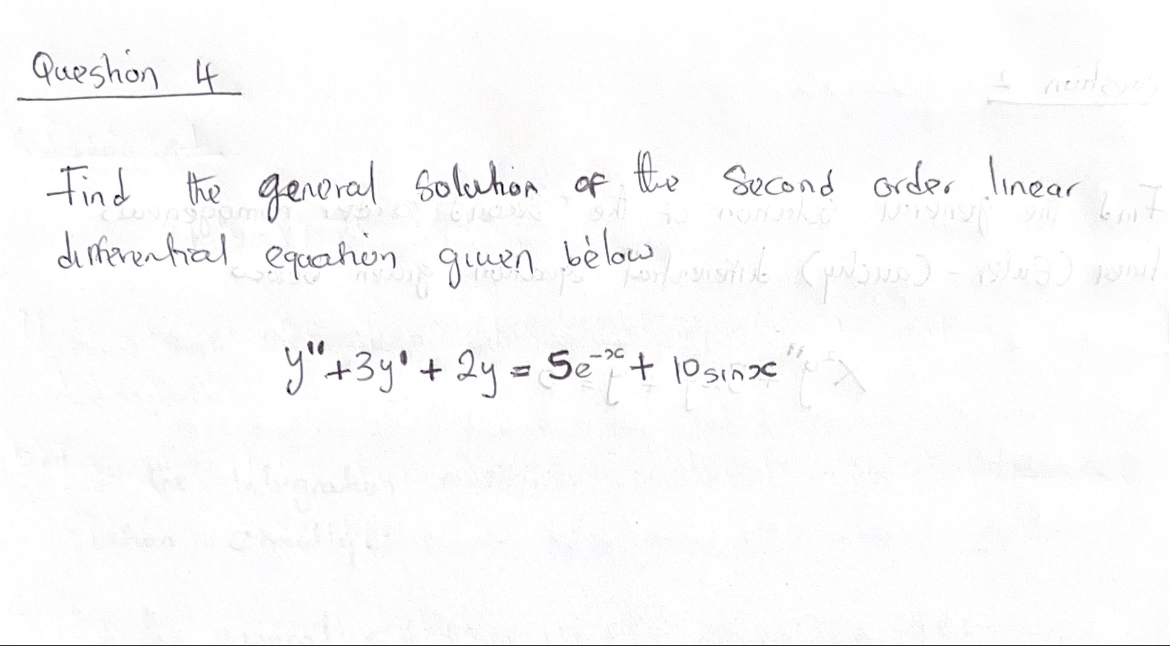 Question 4
Find the general solution of the second order linear
differential equation given below
y" + 3y' + 2y = 5e⁻ˣ + 10 sin x